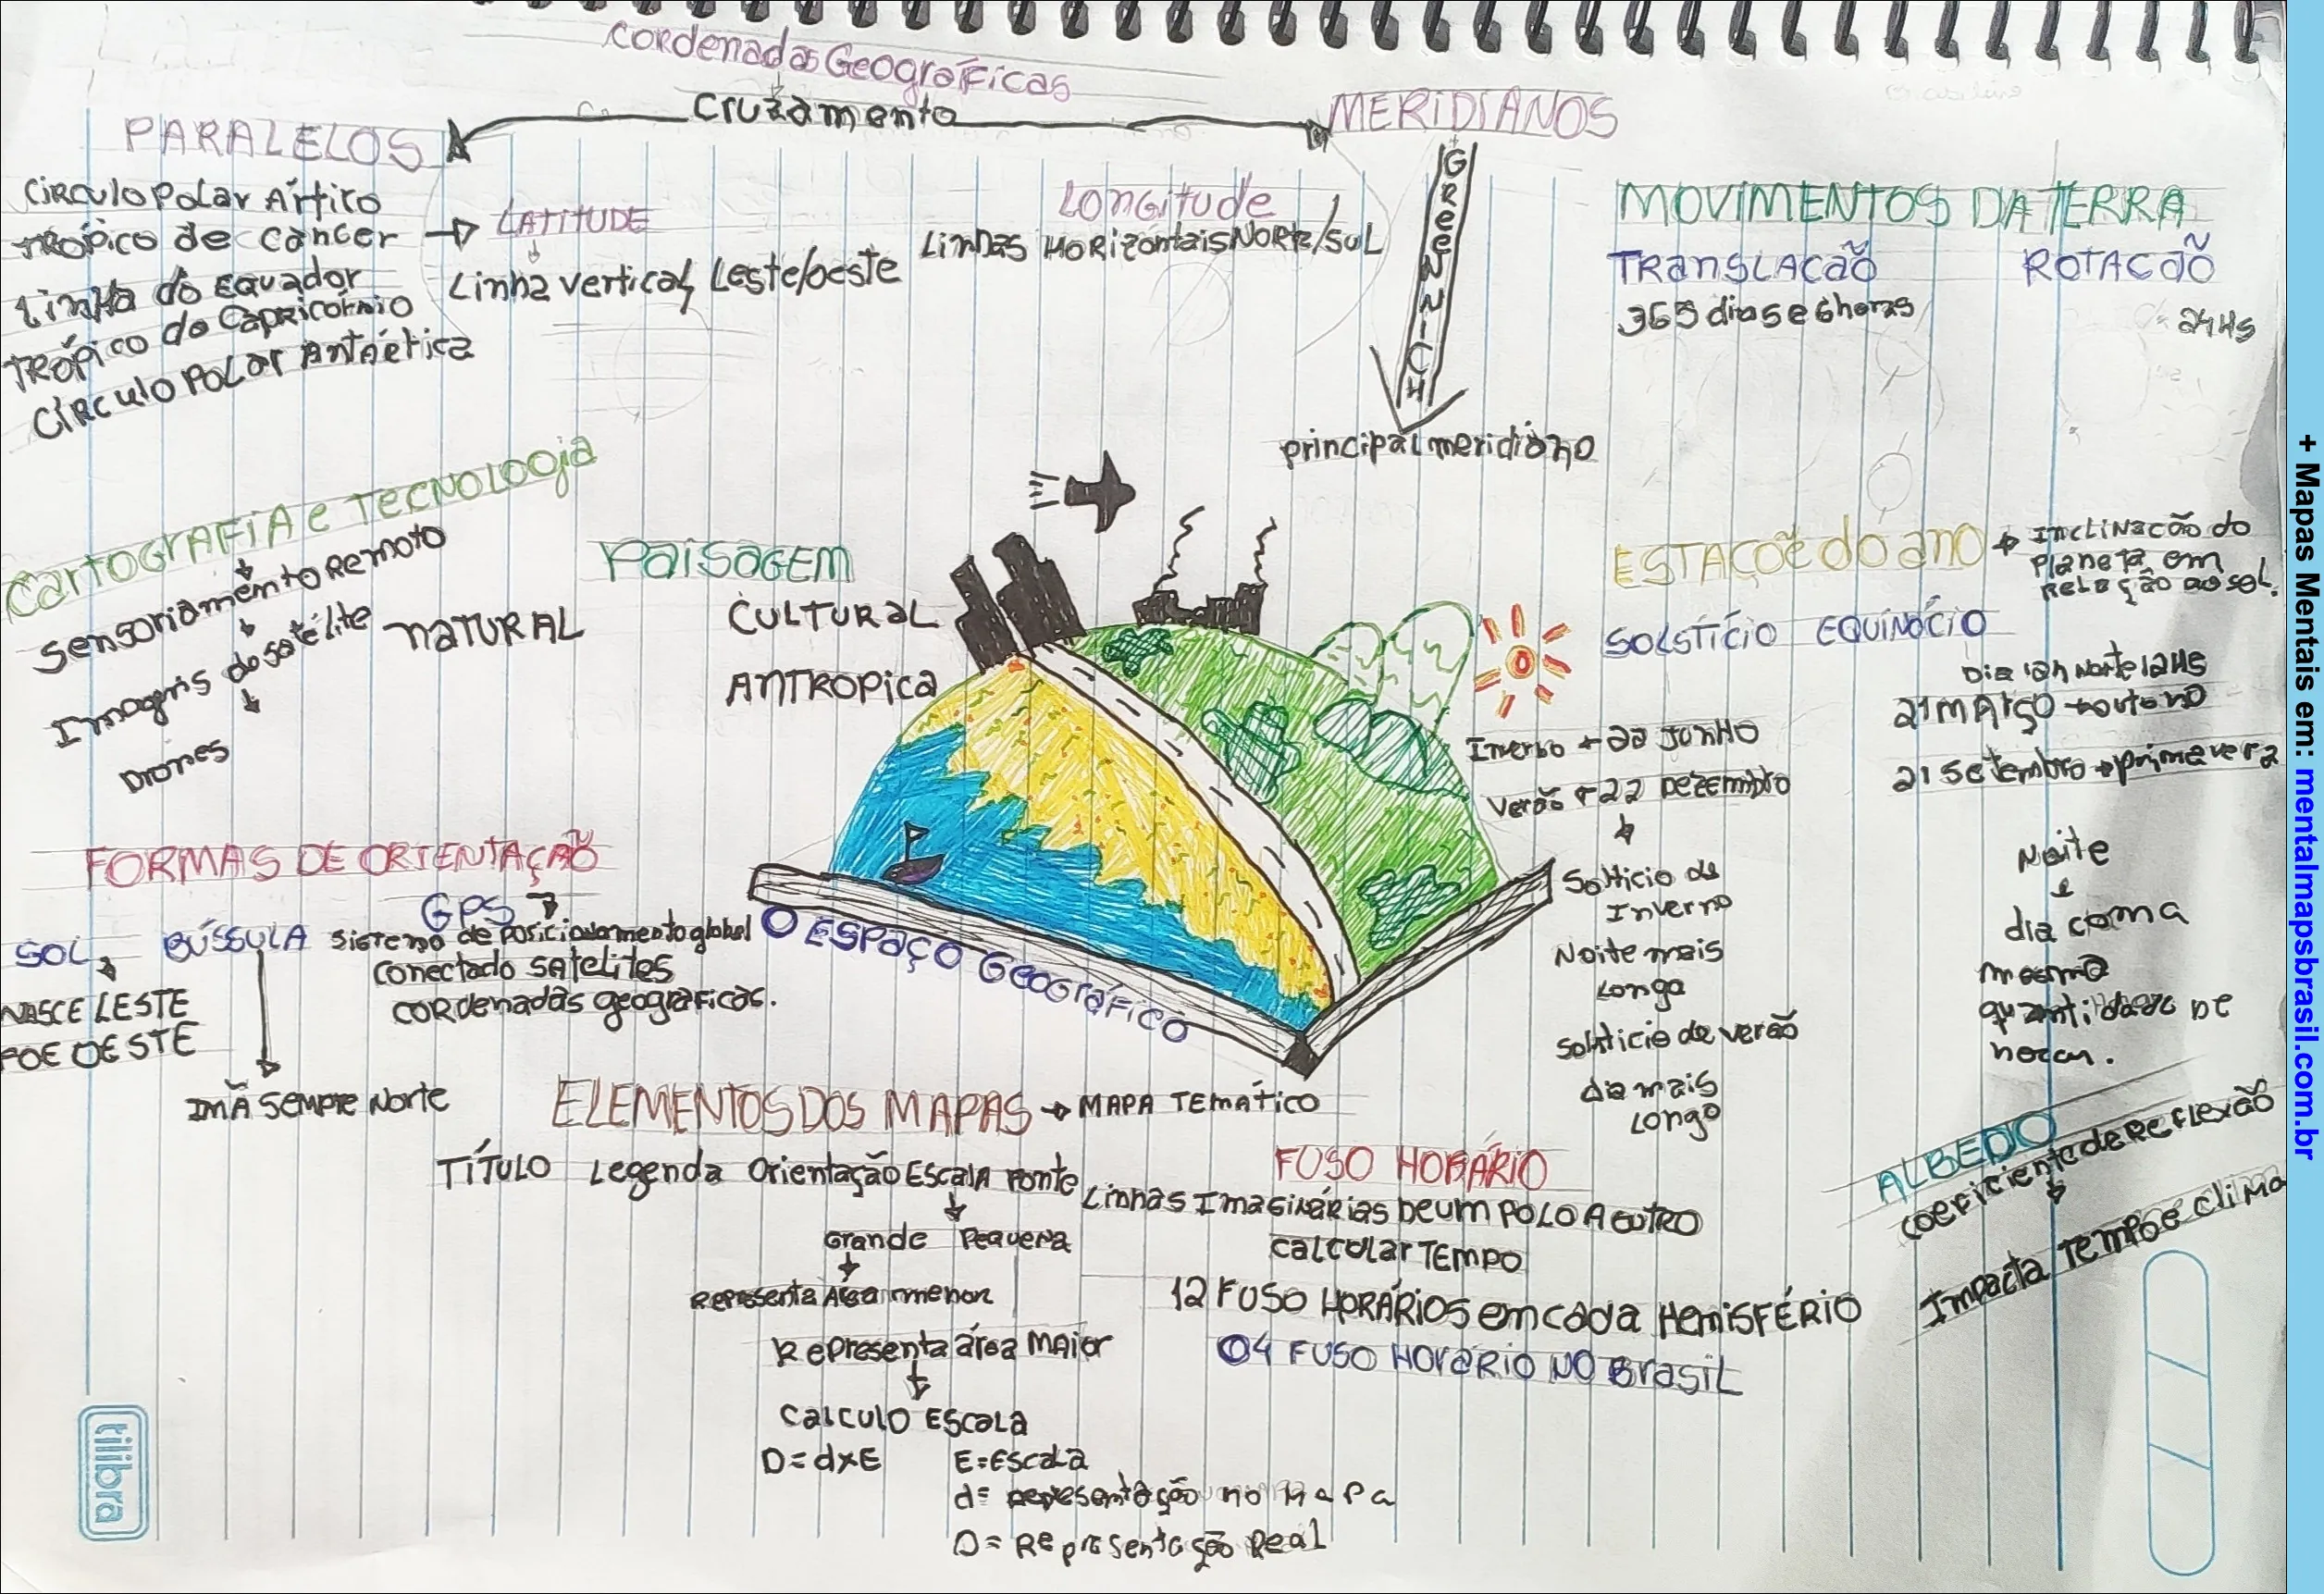 CORdenadas Geográficas
Cruzamento
PARALELOS
MERIDIANOS
GREENNICH
principal meridiano
Círculo Polar Ártico
TRÓPICO de Câncer
LATITUDE
Linha do EQUADOR
Linha vertical Leste/oeste
TRÓPICO do Capricórnio
Círculo POLAR Antártica
Longitude
Linhas HORizontais NORte/SUL
MOVIMENTOS DA TERRA
TRANSLAÇÃO
ROTAÇÃO
365 dias e 6 horas
24Hs
CartoGRAFIA e TecNOLogia
Sensoriamento Remoto
Imagens do satélite
Drones
PAISAGEM
NATURAL
CULTURAL
ANTROPICA
O ESPAÇO GeoGráfico
ESTAÇÕE do ano
INCLINAÇÃO do
Planeta em
Relação ao sol.
SOLSTÍCIO
EQUINÓCIO
Inverno 22 JUNHO
Verão 22 Dezembro
Solsticio de
Inverno
Noite mais
Longa
Solsticio de verão
dia mais
Longo
21 MARÇO outono
21 Setembro primavera
Noite
e
dia com a
mesma
quantidade DE
horas.
FORMAS DE ORIENTAÇÃO
SOL
NASCE LESTE
POE OESTE
BÚSSULA
IMÃ SEMPRE Norte
GPS
Sistema de Posicionamento global
Conectado Satelites
CORdenadas geográficas.
ELEMENTOS DOS MAPAS
MAPA TEMÁTICO
TÍTULO Legenda Orientação ESCALA Fonte
Grande Pequena
Representa Área menor
Representa área MAior
CALCULO ESCALA
D=dxE
E=ESCala
d= representação no Mapa
D= Representação Real
FUSO HORÁRIO
Linhas Imaginárias DE UM POLO A OUTRO
CALCULAR TEMPO
12 FUSO HORÁRIOS em cada HEMISFÉRIO
04 FUSO HORÁRIO NO BRASIL
ALBEDO
COEFICIENTE de REFLEXÃO
Impacta TEMPO e clima
tilibra
+ Mapas Mentais em: mentalmapsbrasil.com.br